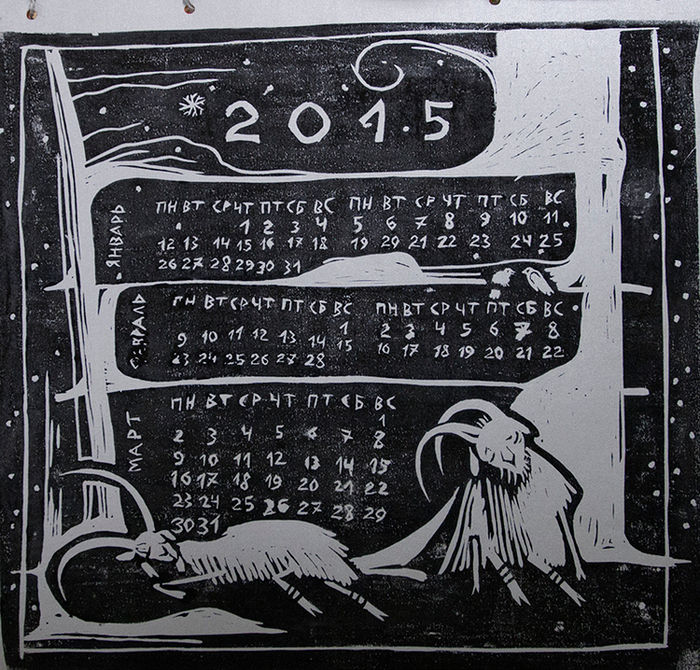 2015
ЯНВАРЬ
ПН ВТ СР ЧТ ПТ СБ ВС ПН ВТ СР ЧТ ПТ СБ ВС
1 2 3 4 5 6 7 8 9 10 11
12 13 14 15 16 17 18 19 20 21 22 23 24 25
26 27 28 29 30 31
ФЕВРАЛЬ
ПН ВТ СР ЧТ ПТ СБ ВС ПН ВТ СР ЧТ ПТ СБ ВС
1 2 3 4 5 6 7 8
9 10 11 12 13 14 15 16 17 18 19 20 21 22
23 24 25 26 27 28
МАРТ
ПН ВТ СР ЧТ ПТ СБ ВС
1
2 3 4 5 6 7 8
9 10 11 12 13 14 15
16 17 18 19 20 21 22
23 24 25 26 27 28 29
30 31